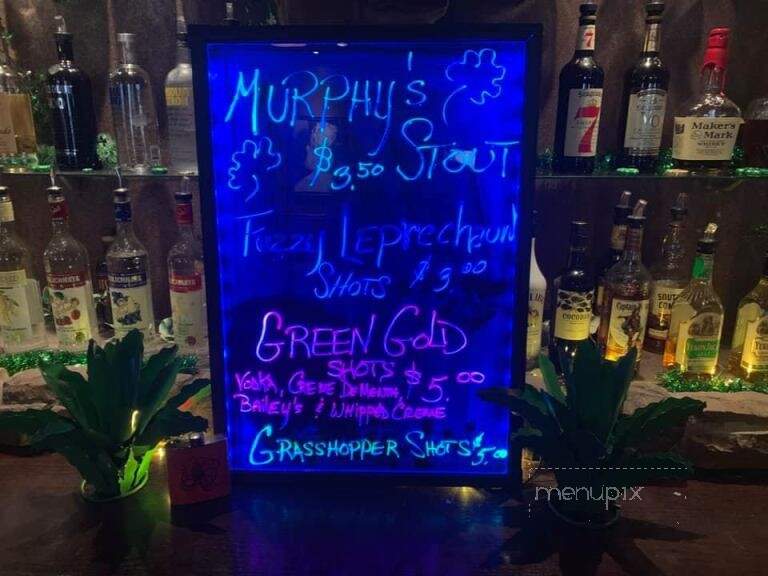 MURPHY'S
STOUT
$3.50
Fuzzy Leprechaun
SHOTS $3.00
GREEN GOLD
SHOTS $5.00
VODKA, CREME DE MENTA,
BAILEY'S & WHIPPED CREME
GRASSHOPPER SHOTS $5.00
7
Maker's
Mark
WHISKY
menupix